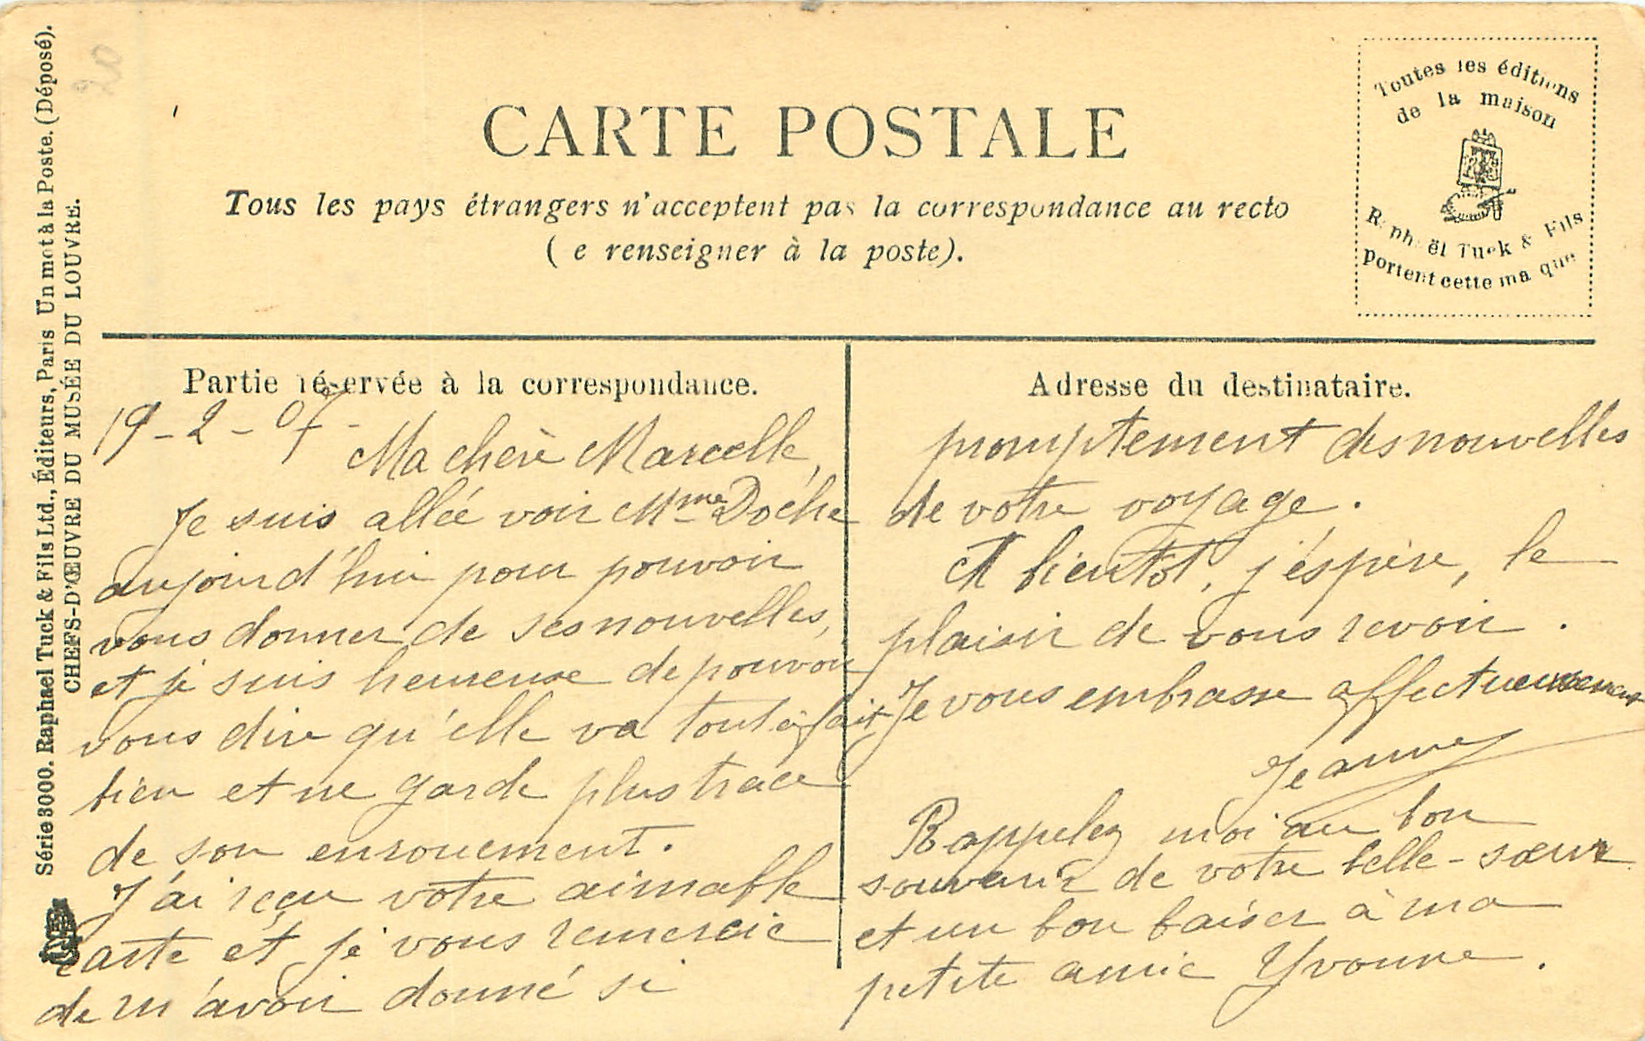 Série 3000. Raphael Tuck & Fils Ltd., Éditeurs, Paris Un mot à la Poste. (Déposé).
CHEFS-D'ŒUVRE DU MUSÉE DU LOUVRE.
CARTE POSTALE
Tous les pays étrangers n'acceptent pas la correspondance au recto
( e renseigner à la poste).
Toutes les éditions
de la maison
Raphaël Tuck & Fils
portent cette marque
Partie réservée à la correspondance.
19-2-07-
Ma chère Marcelle,
Je suis allée voir Mme Doche
aujourd'hui pour pouvoir
vous donner de ses nouvelles,
et je suis heureuse de pouvoir
vous dire qu'elle va tout à fait
bien et ne garde plus trace
de son enrouement.
J'ai reçu votre aimable
carte et je vous remercie
de m'avoir donné si
Adresse du destinataire.
promptement des nouvelles
de votre voyage.
A bientôt, j'éspère, le
plaisir de vous revoir.
Je vous embrasse affectueusement
Jeanne
Rappelez moi au bon
souvenir de votre belle-sœur
et un bon baiser à ma
petite amie Yvonne.